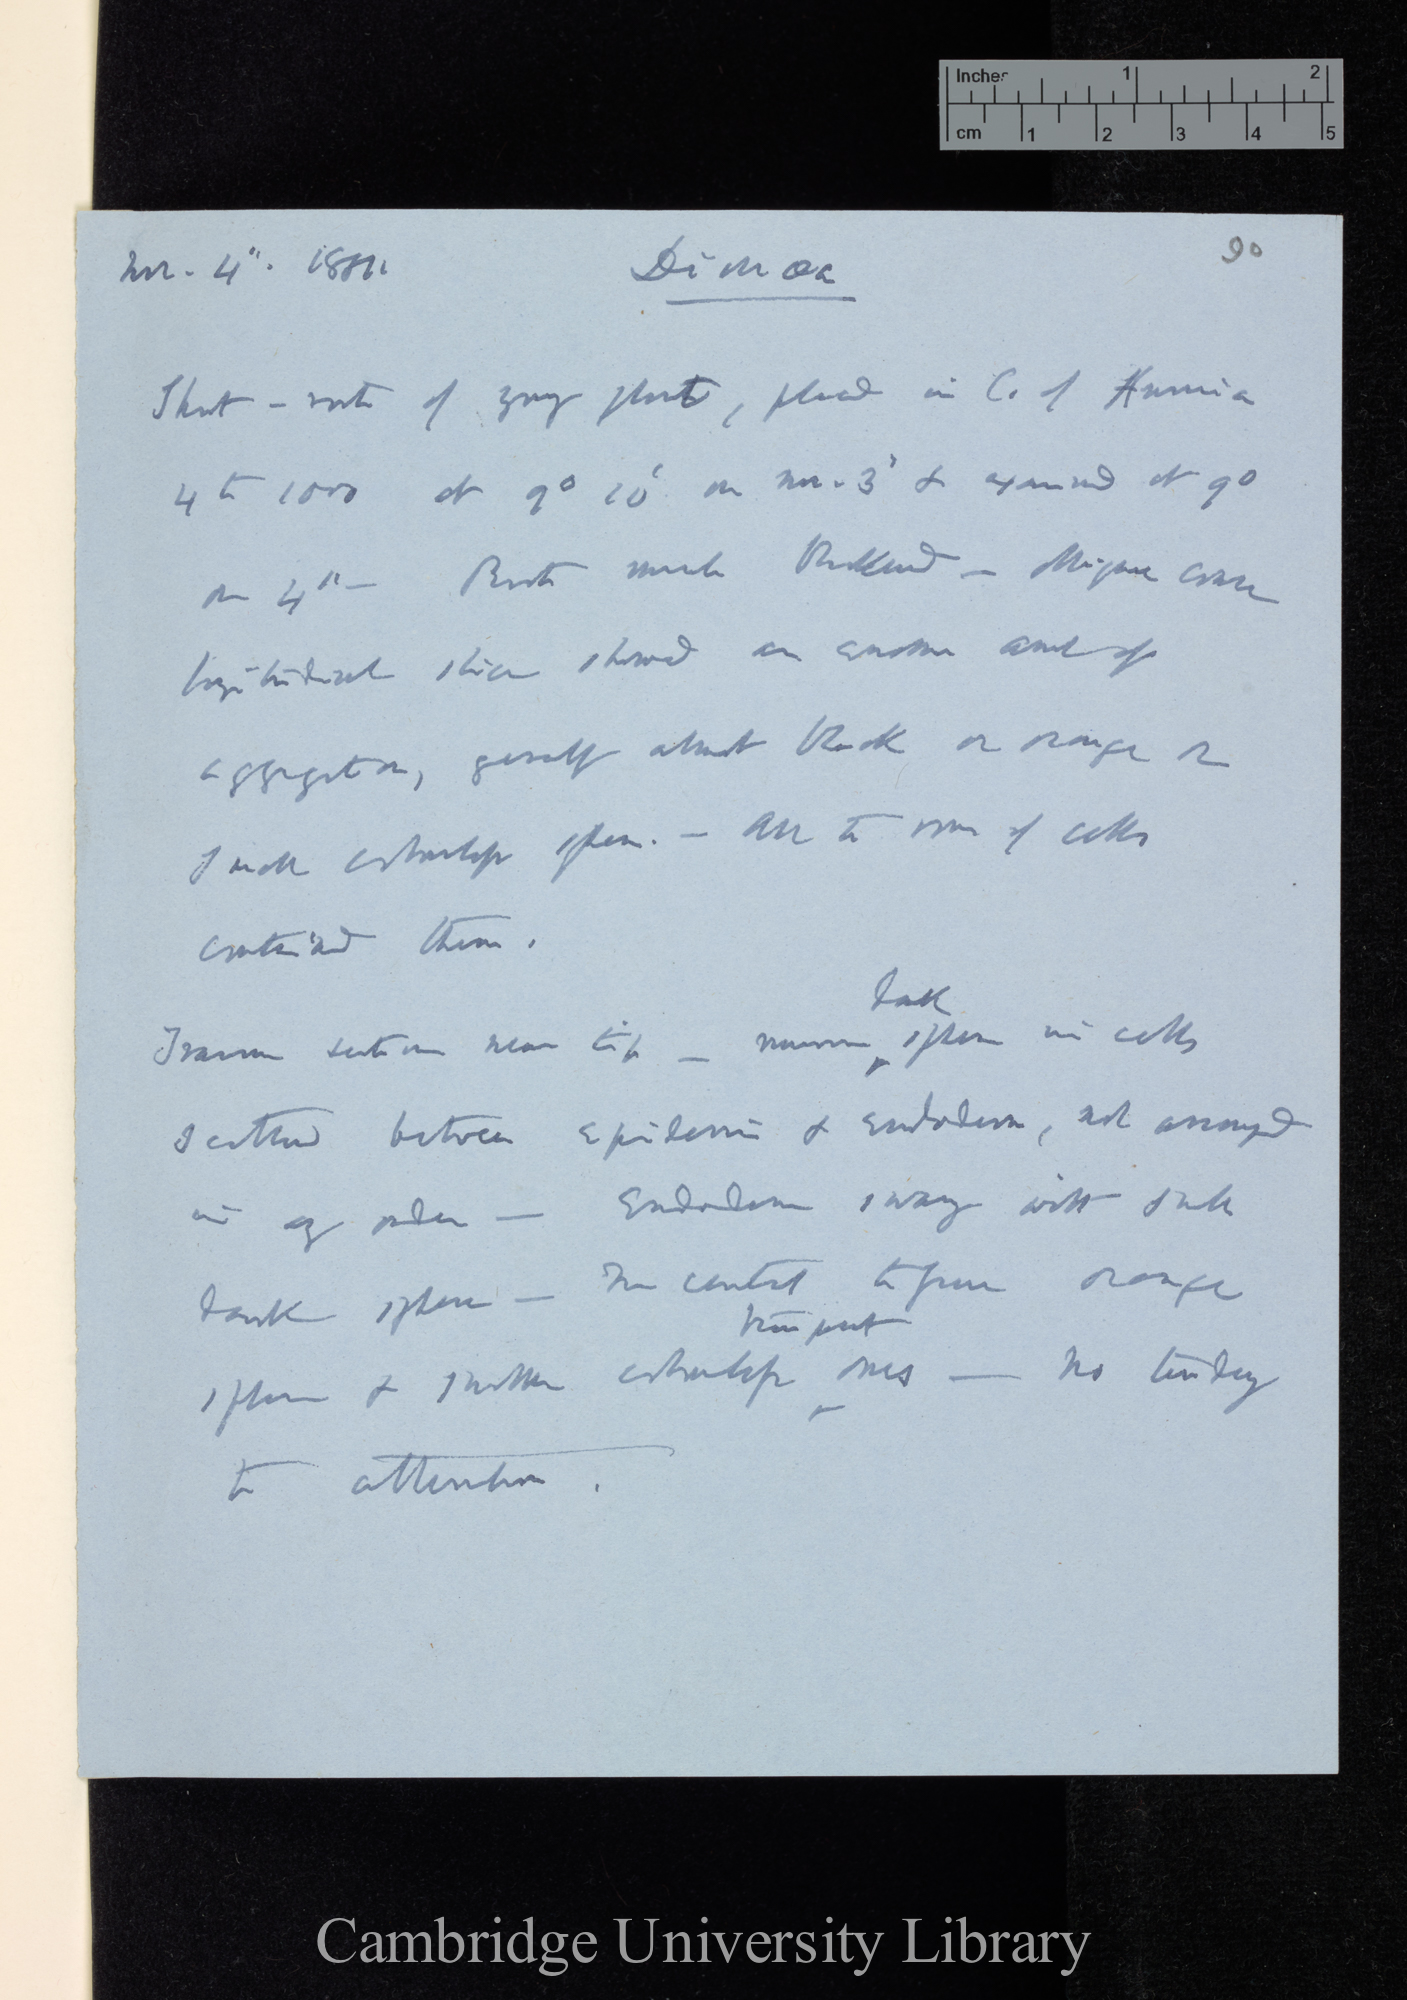 Inches 1 2
cm 1 2 3 4 5
Nov. 4". 1881. Dionœa 90
Short-roots of young plant, placed in C. of Ammonia
4 to 1000 at 9° 10' on Nov. 3d & examined at 9°
on 4th— Roots much blackened — coarse
longitudinal slice showed an enormous amount of
aggregation, generally almost black or orange or
small colourless spheres. — All the rows of cells
contained them.
Transverse section near tip — numerous dark spheres in cells
scattered between Epidermis & Endoderm, not arranged
in any order — Endoderm swarming with such
dark spheres — The central tissue orange
spheres & smaller colourless transparent ones — No tendency
to alternation.
Cambridge University Library